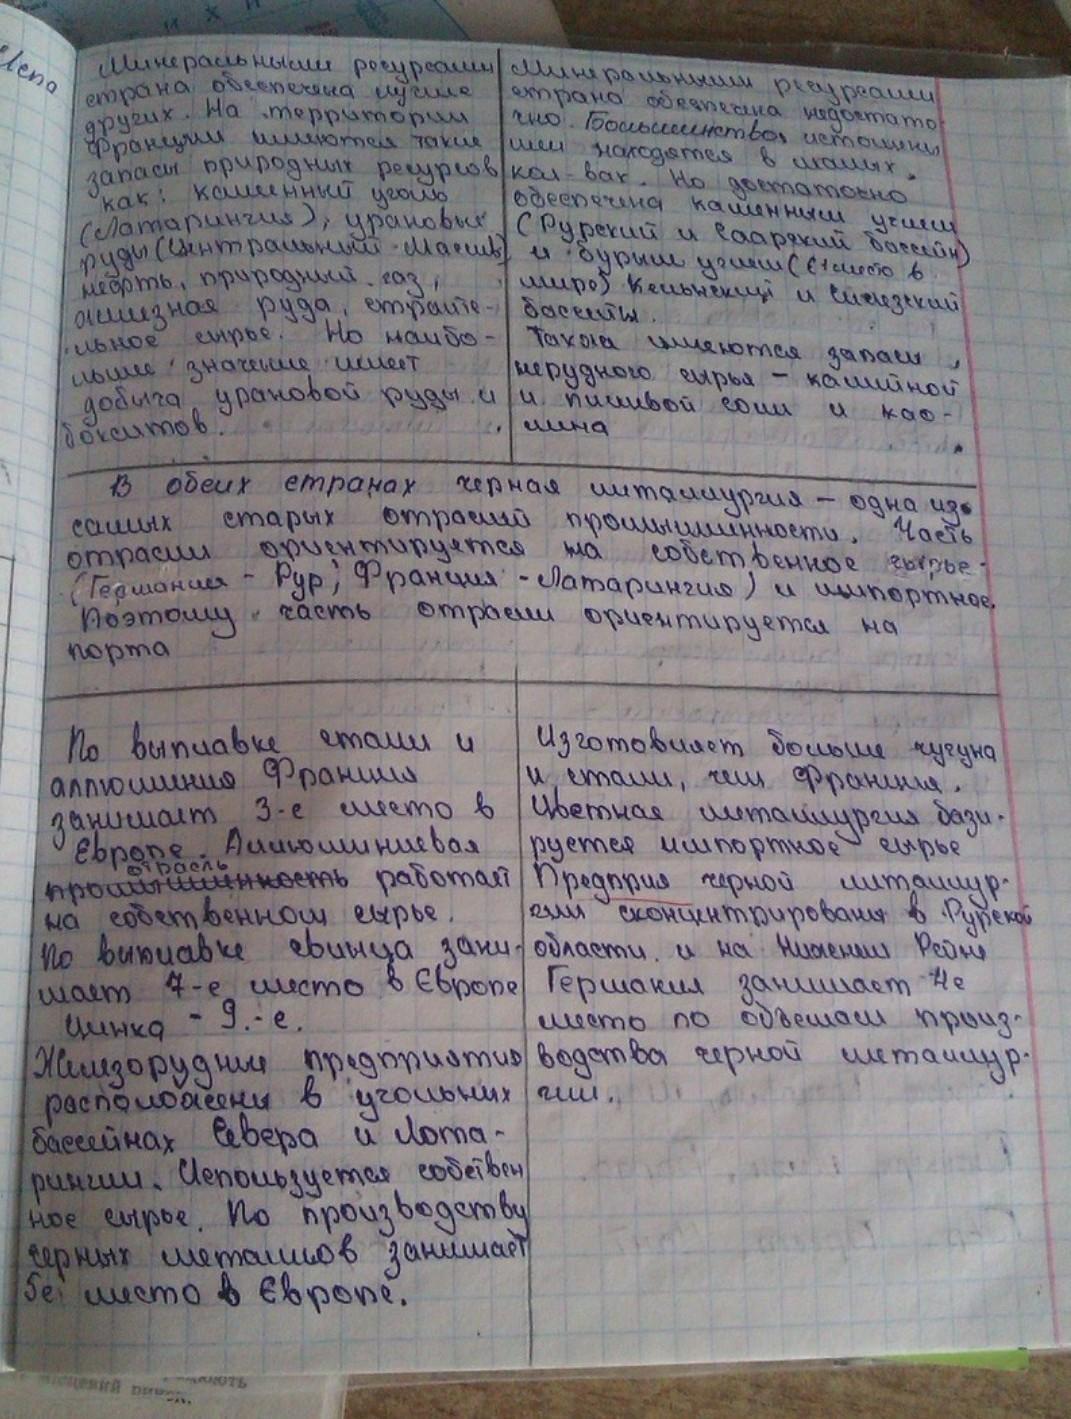 Минеральными ресурсами
страна обеспечена лучше
других. На территории
Франции имеются такие
запасы природных ресурсов
как: каменный уголь
(Латарингия), урановые
руды (Центральный Масив)
нефть, природный газ,
железная руда, строите-
льное сырье. Но наибо-
льшее значение имеет
добыча урановой руды и
бокситов.
Минеральными ресурсами
страна обеспечена недостато
чно. Большинство истощены
или находятся в малых
кол-вах. Но достаточно
обеспечена каменным углем
(Рурский и Саарский бассейн)
и бурым углем (1 место в
мире) Кельнский и Силезский
бассейны.
Также имеются запасы
нерудного сырья – калийной
и пищевой соли и као-
лина
В обеих странах черная металлургия – одна из
самых старых отраслей промышленности. Часть
отрасли ориентируется на собственное сырье
(Германия – Рур; Франция – Латарингия) и импортное.
Поэтому часть отрасли ориентируется на
порта
По выплавке стали и
аллюминия Франция
занимает 3-е место в
Европе. Аллюминиевая
отрасль
промышленность работает
на собственном сырье.
По выплавке свинца зани-
мает 7-е место в Європе
Цинка – 9.-е.
Железорудные предприятия
расположены в угольных
бассейнах Севера и Лота-
рингии. Используется собствен
ное сырье. По производству
черных металлов занимает
5е место в Європе.
Изготовляет больше чугуна
и стали, чем Франция.
Цветная металлургия бази-
руется импортное сырье
Предприя черной металлур-
гии сконцентрирования в Рурской
области и на Нижнем Рейне
Германия занимает 4е
место по объемам произ-
водства черной металлур-
гии.